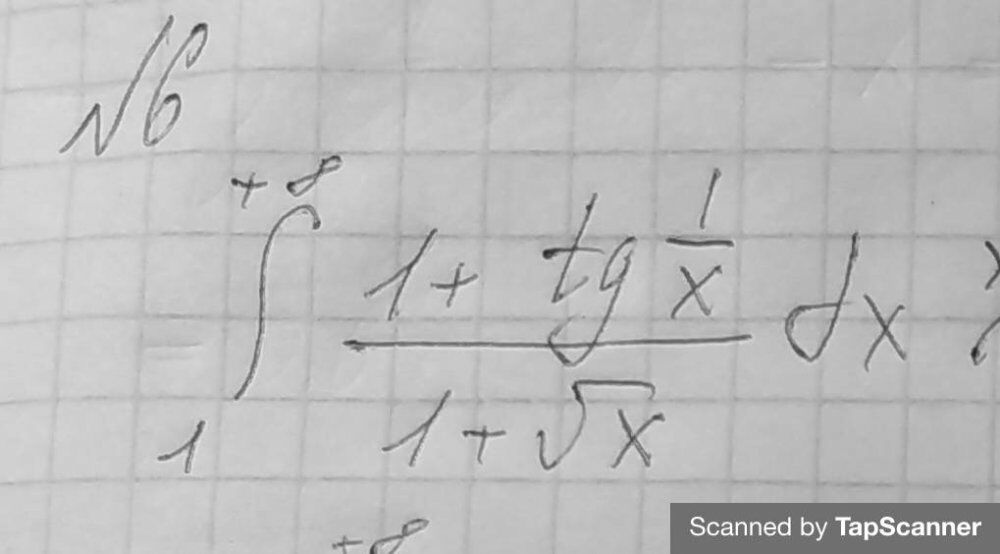 №6
+∞
∫ 1 + tg 1/x
1
――― dx
1 + √x
+∞
Scanned by TapScanner